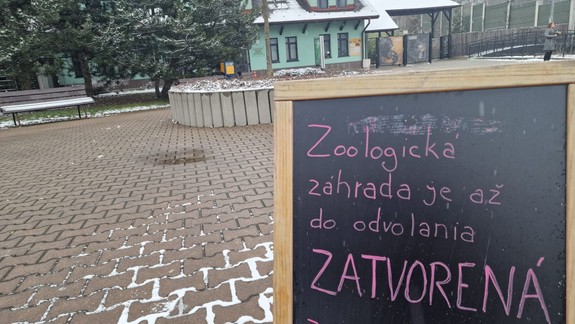 Zoologická
záhrada je až
do odvolania
ZATVORENÁ